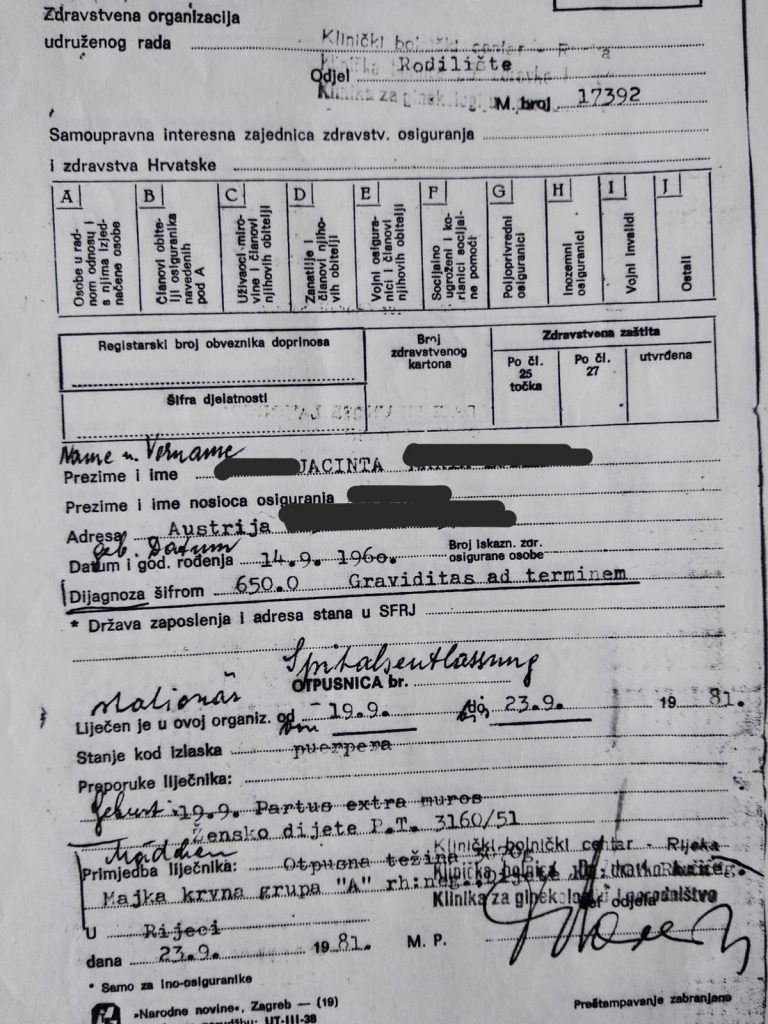 Zdravstvena organizacija
udruženog rada
Klinički bolnički centar - Rijeka
Odjel Rodilište
Klinika za ginekologiju
M. broj 17392
Samoupravna interesna zajednica zdravstv. osiguranja
i zdravstva Hrvatske
A B C D E F G H I J
Osobe u radnom odnosu i s njima izjednačene osobe
Članovi obitelji osiguranika navedenih pod A
Uživaoci mirovine i članovi njihovih obitelji
Zanatlije i članovi njihovih obitelji
Vojni osiguranici i članovi njihovih obitelji
Socijalno ugroženi i korisnici socijalne pomoći
Poljoprivredni osiguranici
Inozemni osiguranici
Vojni invalidi
Ostali
Registarski broj obveznika doprinosa
Broj zdravstvenog kartona
Zdravstvena zaštita
Po čl. 25 točka
Po čl. 27
utvrđena
Šifra djelatnosti
Name u. Vorname
Prezime i ime JACINTA
Prezime i ime nosioca osiguranja
Adresa Austrija
geb. Datum
Datum i god. rođenja 14.9. 1960. Broj iskazn. zdr. osigurane osobe
Dijagnoza šifrom 650.0 Graviditas ad terminem
* Država zaposlenja i adresa stana u SFRJ
Spitalsentlassung
OTPUSNICA br.
stationär
Liječen je u ovoj organiz. od 19.9. do 23.9. 19 81.
von bis
Stanje kod izlaska puerpera
Preporuke liječnika:
Geburt 19.9. Partus extra muros
Žensko dijete P.T. 3160/51
Mädchen
Primjedba liječnika: Otpusna težina 3070g
Majka krvna grupa "A" rh:neg.
Klinički bolnički centar - Rijeka
Klinička bolnica
Klinika za ginekologiju i porodništvo
Šef odjela
U Rijeci
dana 23.9. 1981. M. P.
* Samo za ino-osiguranike
»Narodne novine«, Zagreb — (19)
UT-III-38
Preštampavanje zabranjeno